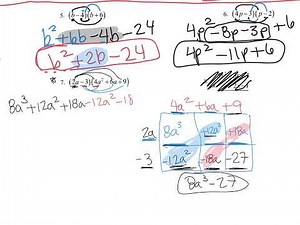 5. (b-4)(b+6)
b² + 6b - 4b - 24
b² + 2p - 24
6. (4p-3)(p-2)
4p² - 8p - 3p + 6
4p² - 11p + 6
7. (2a-3)(4a²+6a+9)
8a³ + 12a² + 18a - 12a² - 18
4a² + 6a + 9
2a 8a³ +12a² +18a
-3 -12a² -18a -27
8a³ - 27